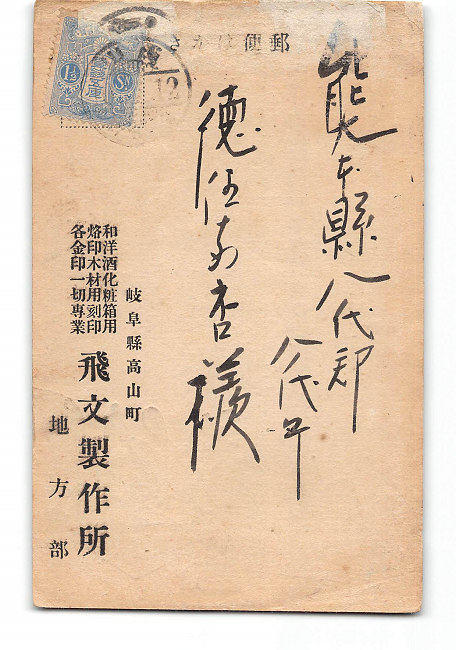 郵便はかき
熊本縣八代郡
八代
德
様
和洋酒化粧箱用
烙印木材用刻印
各金印一切專業
岐阜縣高山町
飛文製作所
地方部
1½ Sn
12